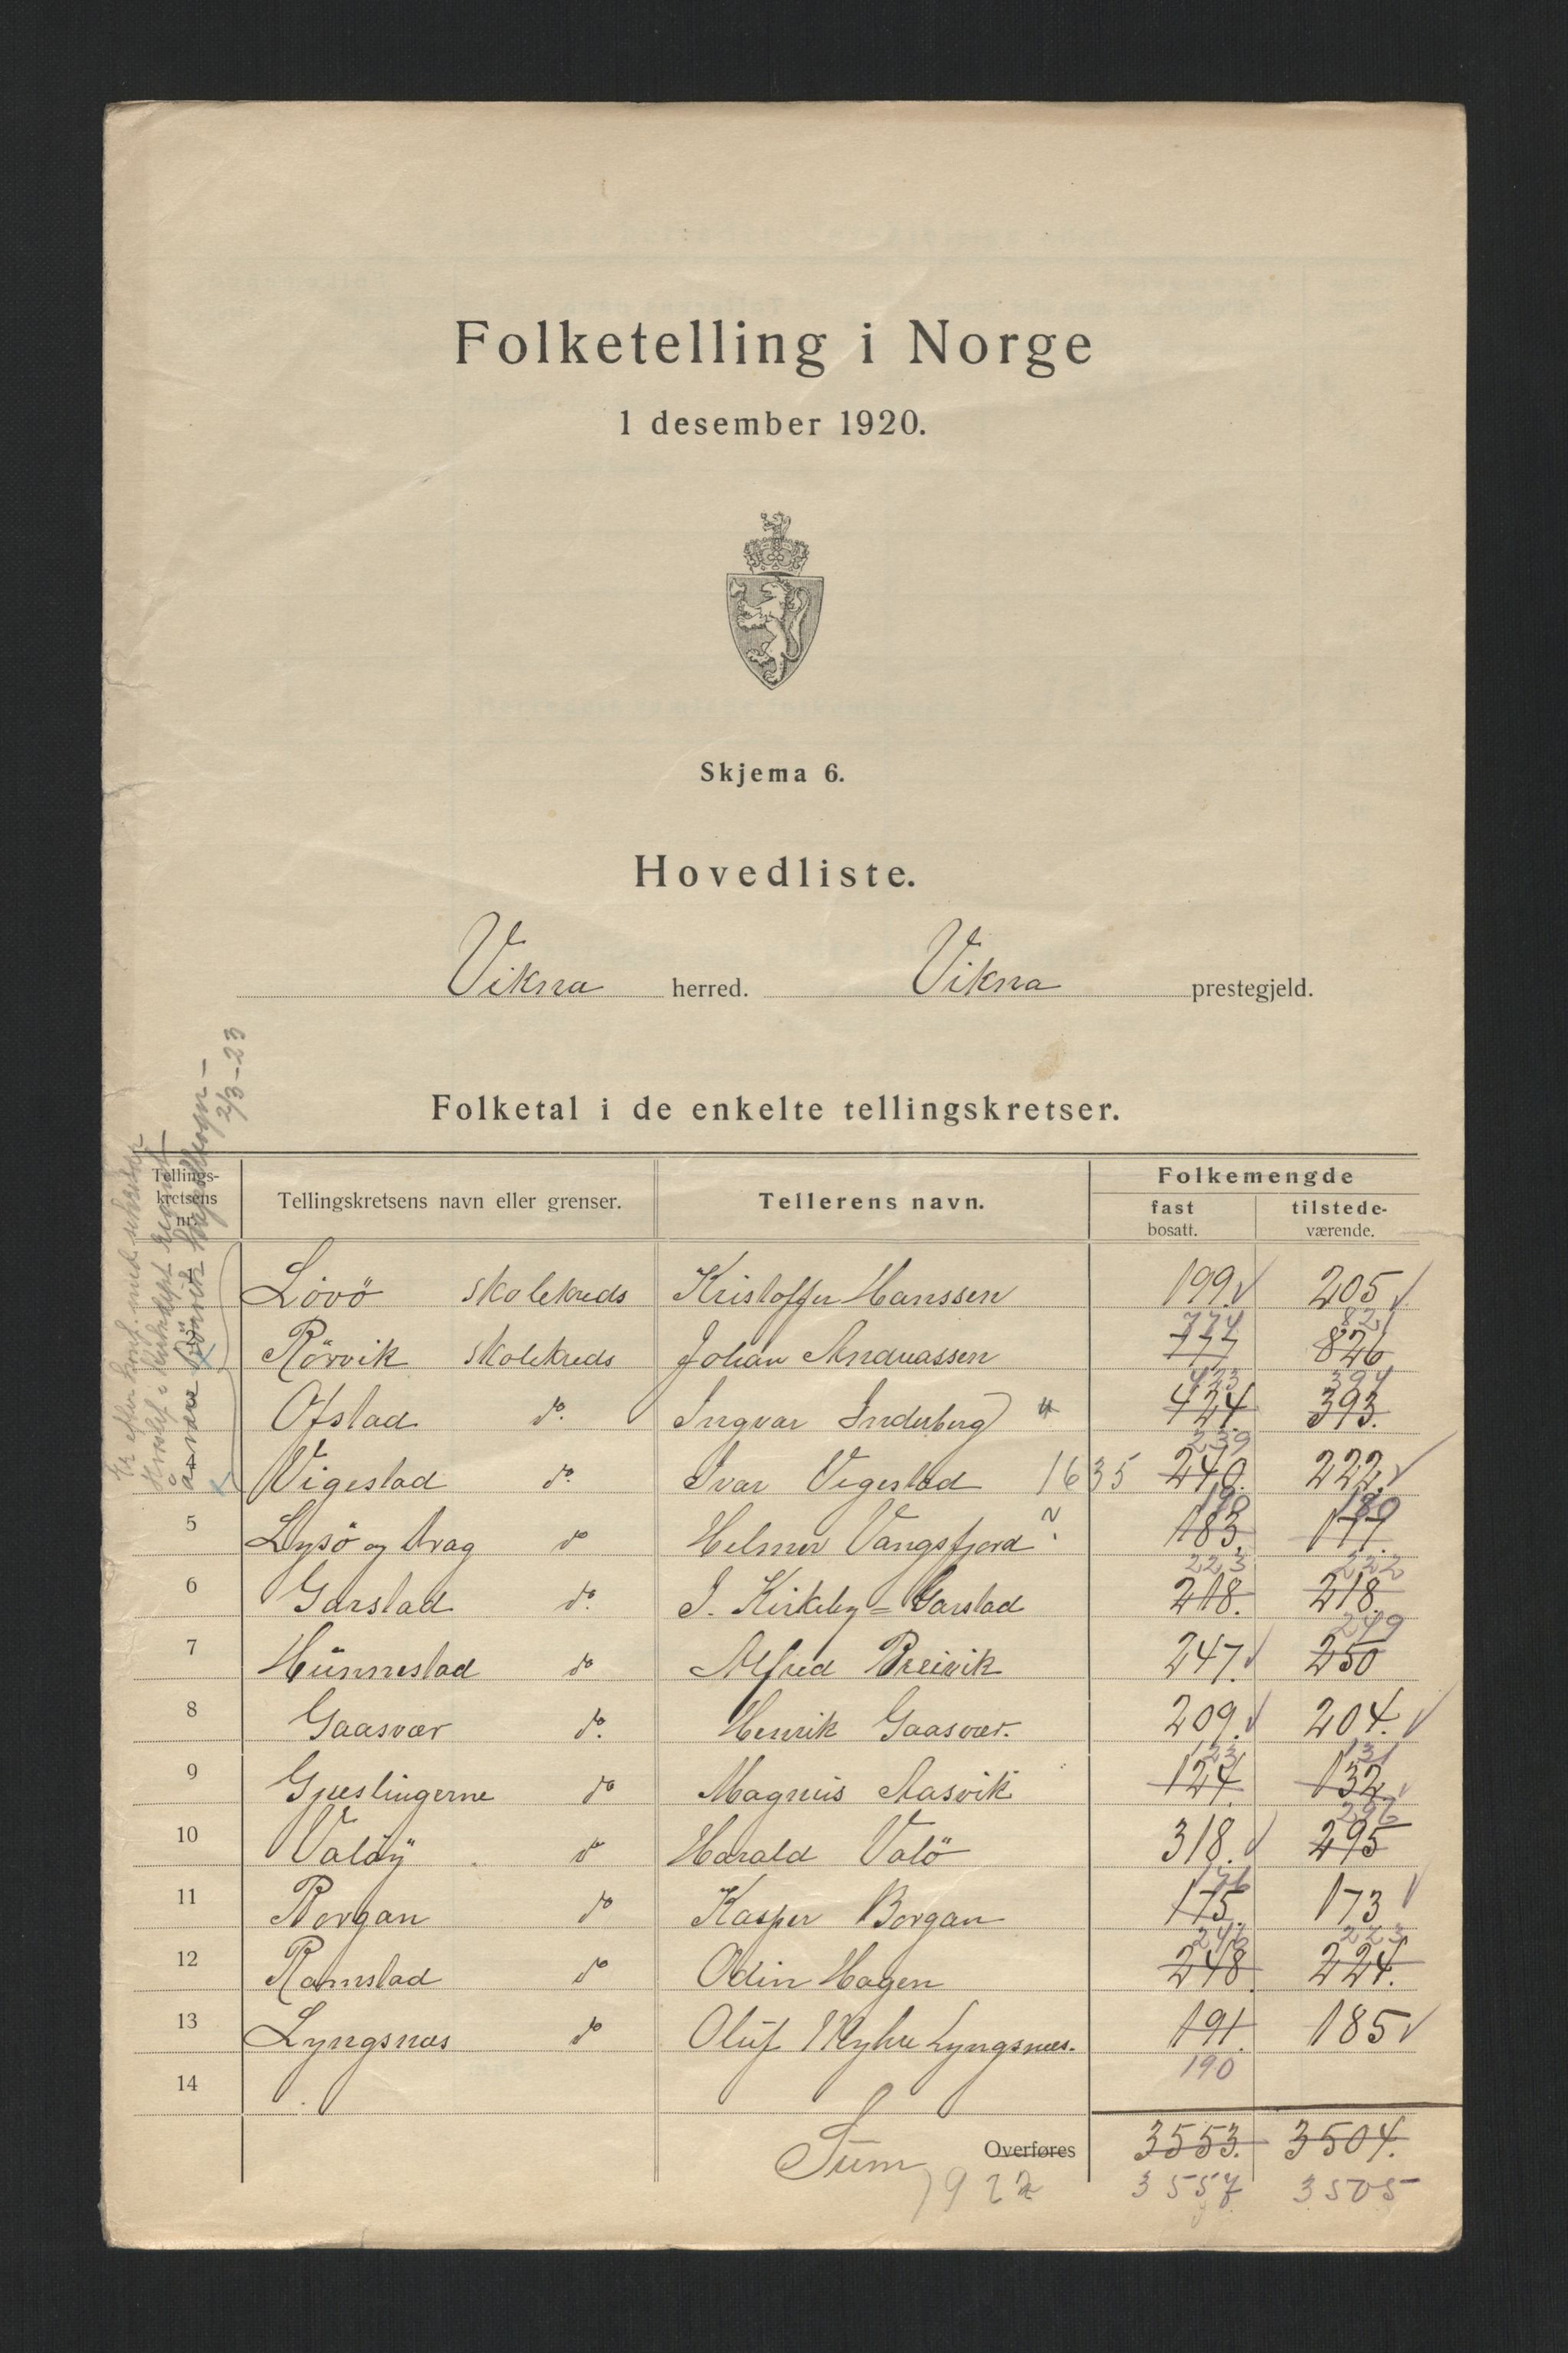 Folketelling i Norge
1 desember 1920.
Skjema 6.
Hovedliste.
Vikna herred. Vikna prestegjeld.
Folketal i de enkelte tellingskretser.
Tellings-
kretsens
nr.
Tellingskretsens navn eller grenser.
Tellerens navn.
Folkemengde
fast
bosatt.
tilstede-
værende.
2/3-23
Lövö skolekreds Kristoffer Hanssen 199. 205
774 821
Rörvik skolekreds Johan Andreassen 777 826
423 394
Ofstad do. Ingvar Inderberg 424 393.
239
Vigestad do. Ivar Vegestad 1635 240. 222.
5 Lysö og Drag do Helmer Vangsfjord ? 183. 177.
223 222
6 Garstad do. J. Kirkeby = Garstad 218. 218.
249
7 Hunnestad do Alfred Breivik 247. 250
8 Gaasvær do. Henrik Gaasvær. 209. 204.
123 131
9 Gjæslingerne do Magnus Aasvik 124. 132
296
10 Valöy do Harald Valö 318. 295
176
11 Borgan do Kasper Borgan 175. 173
246 223
12 Ramstad do Odin Hagen 248 224.
13 Lyngsnæs do Oluf Myhre Lyngsnæs. 191. 185
14 190
Sum Overføres 3553. 3504.
1922 3557 3505